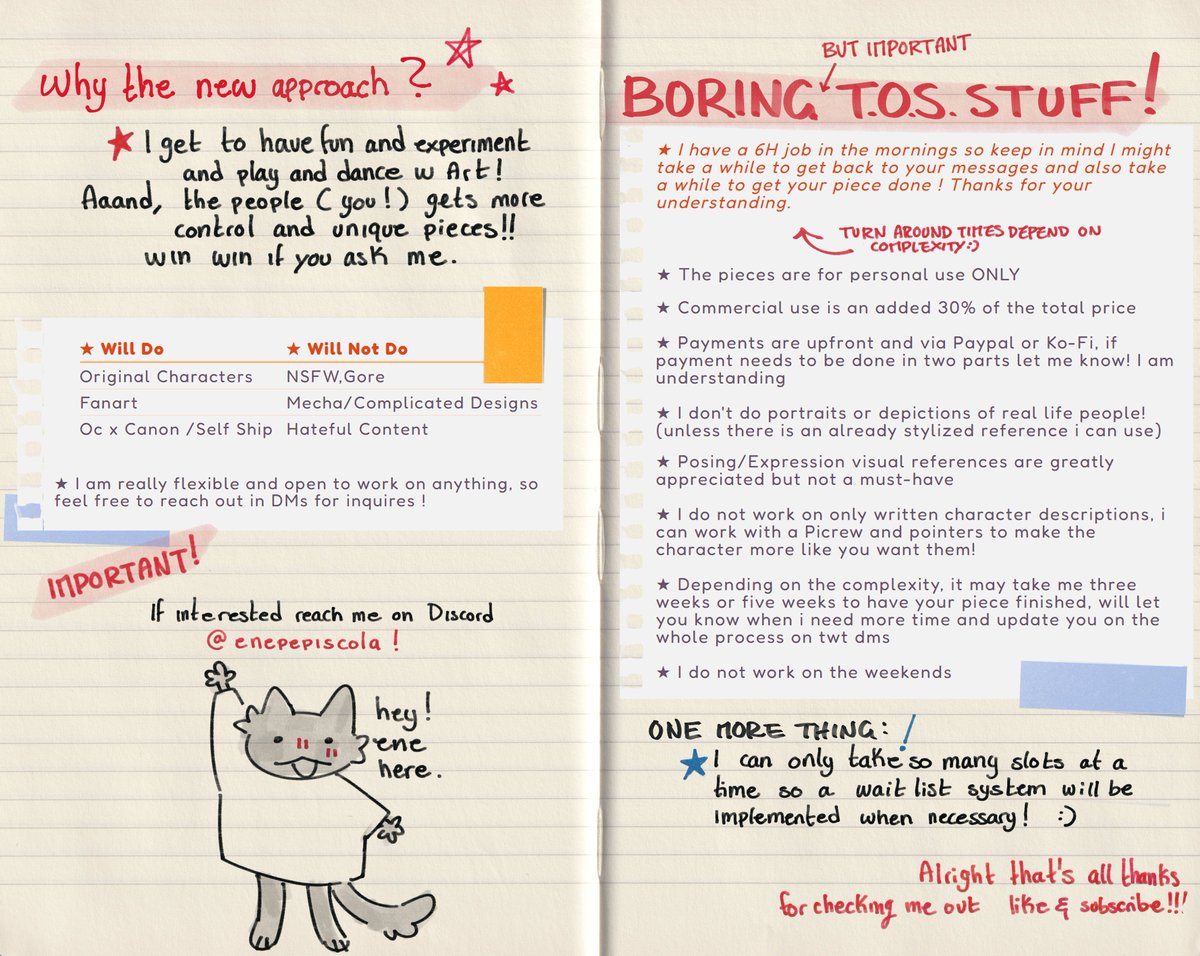 Why the new approach?
★ I get to have fun and experiment
and play and dance w Art!
Aaand, the people (you!) gets more
control and unique pieces!!
win win if you ask me.
★ Will Do
★ Will Not Do
Original Characters
NSFW,Gore
Fanart
Mecha/Complicated Designs
Oc x Canon /Self Ship
Hateful Content
★ I am really flexible and open to work on anything, so
feel free to reach out in DMs for inquires !
IMPORTANT!
If interested reach me on Discord
@enepepiscola !
hey!
ene
here.
BUT IMPORTANT
BORING T.O.S. STUFF!
★ I have a 6H job in the mornings so keep in mind I might
take a while to get back to your messages and also take
a while to get your piece done ! Thanks for your
understanding.
TURN AROUND TIMES DEPEND ON
COMPLEXITY:)
★ The pieces are for personal use ONLY
★ Commercial use is an added 30% of the total price
★ Payments are upfront and via Paypal or Ko-Fi, if
payment needs to be done in two parts let me know! I am
understanding
★ I don't do portraits or depictions of real life people!
(unless there is an already stylized reference i can use)
★ Posing/Expression visual references are greatly
appreciated but not a must-have
★ I do not work on only written character descriptions, i
can work with a Picrew and pointers to make the
character more like you want them!
★ Depending on the complexity, it may take me three
weeks or five weeks to have your piece finished, will let
you know when i need more time and update you on the
whole process on twt dms
★ I do not work on the weekends
ONE MORE THING: !
★ I can only take so many slots at a
time so a wait list system will be
implemented when necessary! :)
Alright that's all thanks
for checking me out like & subscribe!!!